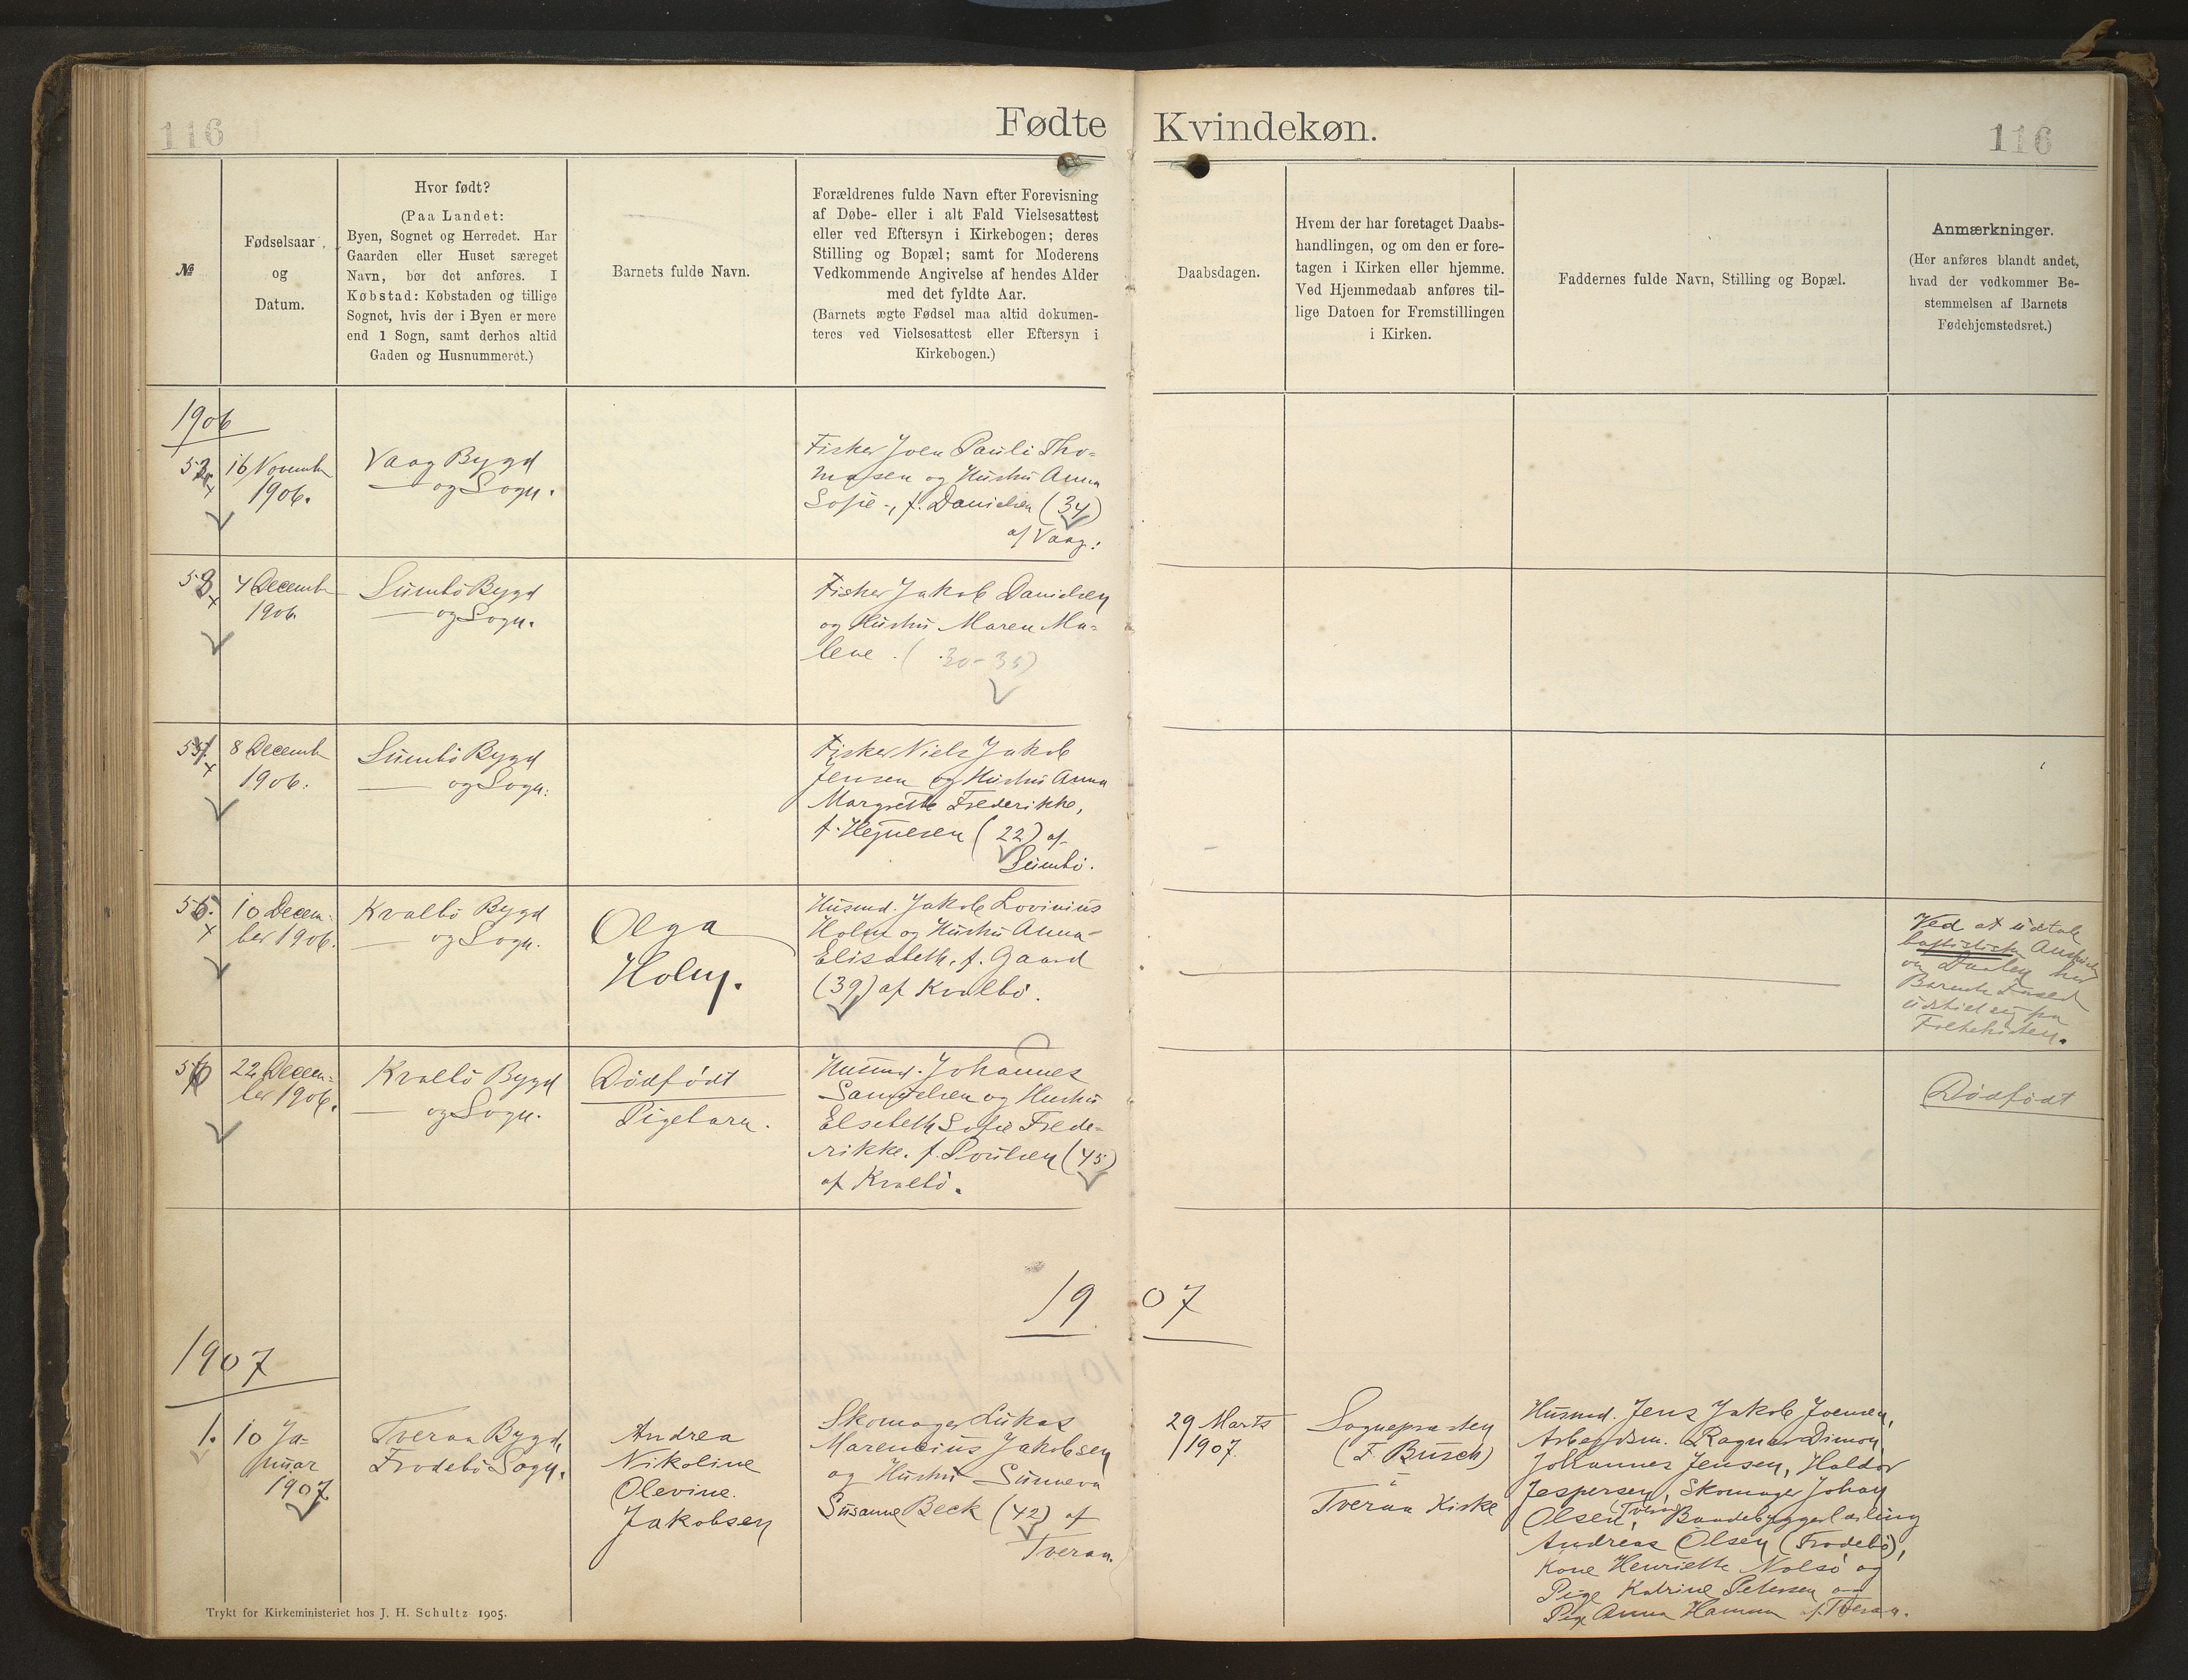 116
Fødte Kvindekøn.
116
№
Fødselsaar
og
Datum.
Hvor født?
(Paa Landet:
Byen, Sognet og Herredet. Har
Gaarden eller Huset særeget
Navn, bør det anføres. I
Købstad: Købstaden og tillige
Sognet, hvis der i Byen er mere
end 1 Sogn, samt derhos altid
Gaden og Husnummeret.)
Barnets fulde Navn.
Forældrenes fulde Navn efter Forevisning
af Døbe- eller i alt Fald Vielsesattest
eller ved Eftersyn i Kirkebogen; deres
Stilling og Bopæl; samt for Moderens
Vedkommende Angivelse af hendes Alder
med det fyldte Aar.
(Barnets ægte Fødsel maa altid dokumen-
teres ved Vielsesattest eller Eftersyn i
Kirkebogen.)
Daabsdagen.
Hvem der har foretaget Daabs-
handlingen, og om den er fore-
tagen i Kirken eller hjemme.
Ved Hjemmedaab anføres til-
lige Datoen for Fremstillingen
i Kirken.
Faddernes fulde Navn, Stilling og Bopæl.
Anmærkninger.
(Her anføres blandt andet,
hvad der vedkommer Be-
stemmelsen af Barnets
Fødehjemstedsret.)
1906
52
16 Novemb
1906.
Vaag Bygd
— og Sogn.
Fisker Joen Pauli Tho-
masen og Hustru Anna
Sofie, f. Danielsen (34)
af Vaag.
53
4 Decemb
1906.
Sumbö Bygd
— og Sogn.
Fisker Jakob Danielsen
og Hustru Maren Ma-
lene (30-35)
54
8 Decemb
1906.
Sumbö Bygd
— og Sogn.
Fisker Niels Jakob
Jensen og Hustru Anna
Margrethe Frederikke,
f. Hejnesen (22) af
Sumbö.
55
10 Decem-
ber 1906.
Kvalbö Bygd
— og Sogn.
Olga
Holm.
Husmd. Jakob Lovinius
Holm og Hustru Anna
Elisabeth, f. Gaard
(39) af Kvalbö.
Ved at udtale
baptistiske
om Daaben har
Barnets
udskilt sig fra
Folkekirken.
56
22 Decem-
ber 1906.
Kvalbö Bygd
— og Sogn.
Dödfödt
Pigebarn.
Husmd. Johannes
Samuelsen og Hustru
Elsebeth Sofie Frede-
rikke, f. Poulsen (45)
af Kvalbö.
Dödfödt
1907
1907
1.
10 Ja-
nuar
1907.
Tveraa Bygd,
Frodebö Sogn.
Andrea
Nikoline
Olevine
Jakobsen
Skomager Lukas
Marentius Jakobsen
og Hustru Sunneva
Susanne Beck (42) af
Tveraa.
29 Marts
1907.
Sognepræsten
(F. Busch)
i
Tveraa Kirke
Husmd. Jens Jakob Joensen,
Arbejdsm. Ragnar Dimon,
Johannes Jensen, Haldor
Jespersen, Skomager Johan
Olsen, Tveraa, Baadebyggerlærling
Andreas Olsen (Frodebö),
Kone Henriette Nolsö og
Pige Katrine Petersen og
Pige Anna Hammer af Tveraa.
Trykt for Kirkeministeriet hos J. H. Schultz 1905.